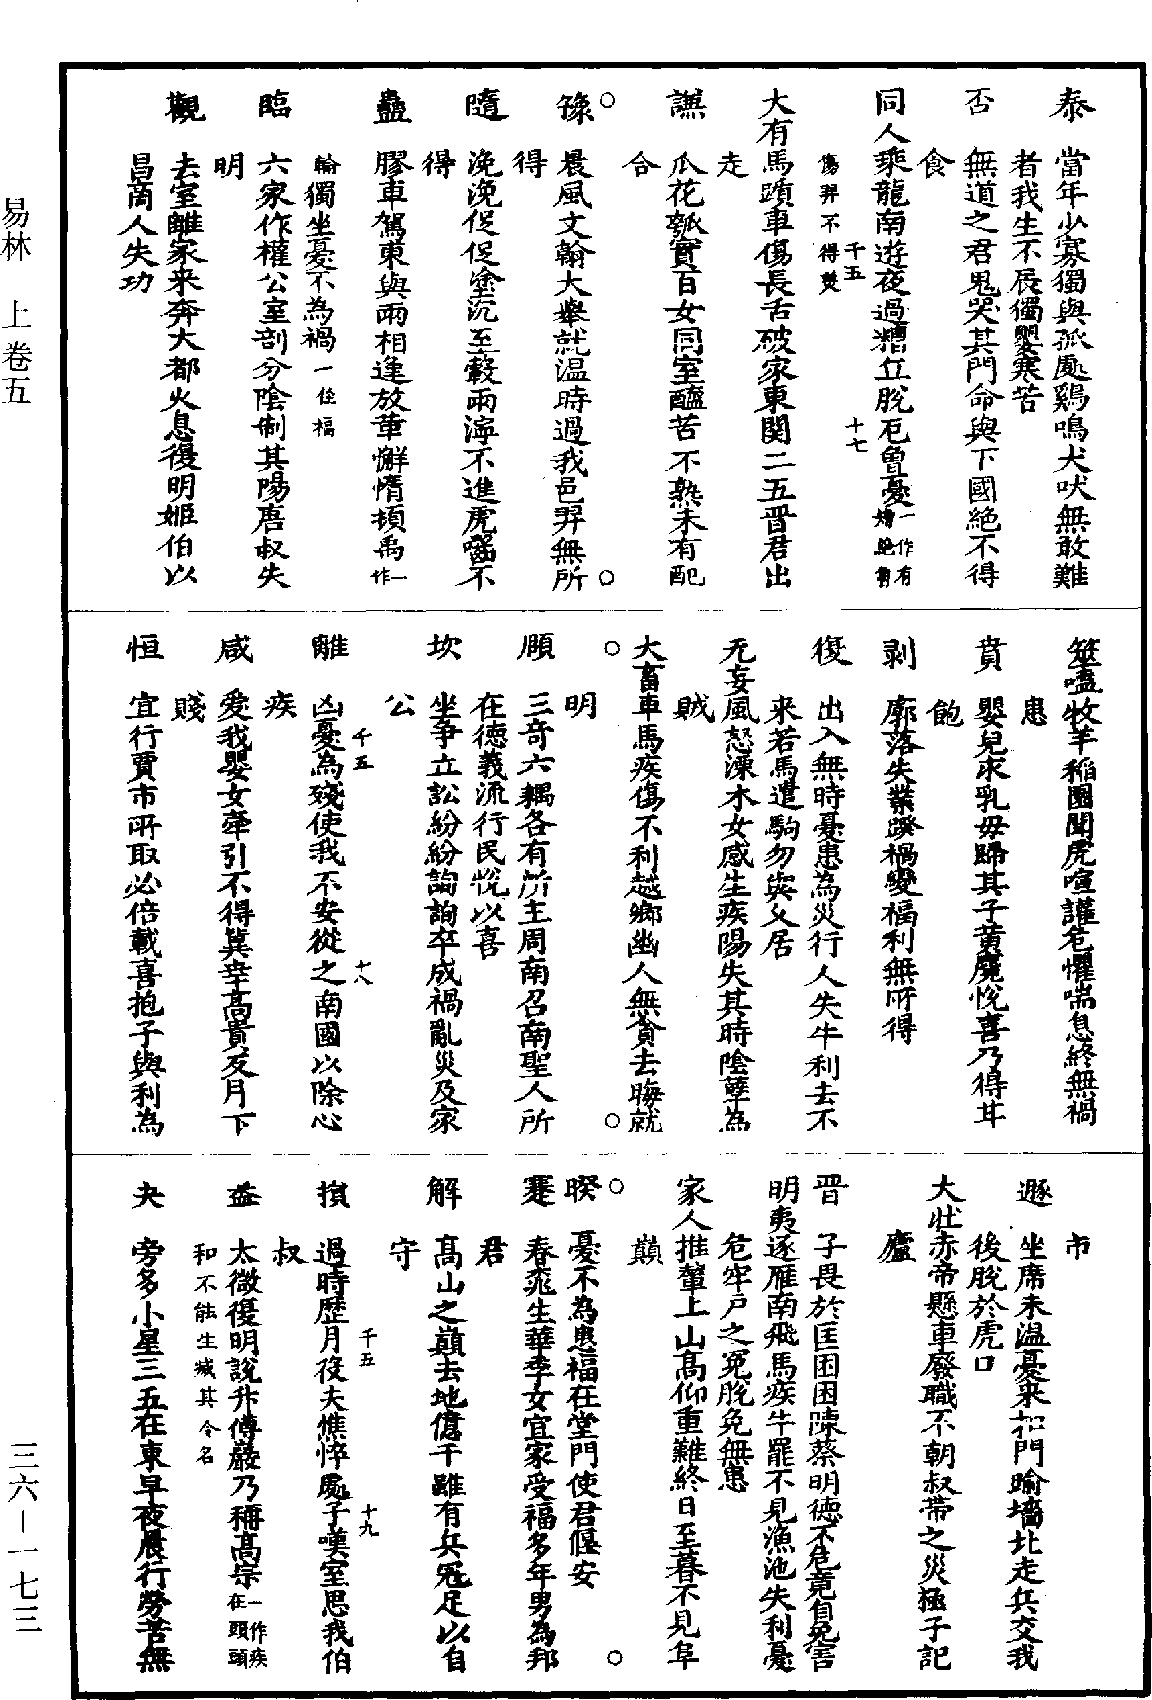 泰　當年少寡獨與孤處鷄鳴犬吠無敢難
者我生不辰獨嬰寒苦
否　無道之君鬼哭其門命與下國絕不得
食
同人乘龍南遊夜過糟丘脫厄魯憂一作有
傷羿不得
千五
十七
大有馬躓車傷長舌破家東関二五晋君出
走
謙　瓜花瓠實百女同室醯苦不熟未有配
合
○　○
豫　晨風文翰大舉就温時過我邑羿無所
得
隨　浼浼促促塗沉至轂雨濘不進虎嚙不
得
蠱　膠車駕東與雨相逢放革懈惰頓禹一作
輪獨坐憂不為禍一作福
臨　六家作權公室剖分陰制其陽唐叔失
明
觀　去室離家来奔大都火息復明姬伯以
昌商人失功
易林　上卷五
三六－一七三
筮嗑牧羊稻園聞虎喧讙危懼喘息終無禍
患
賁　嬰兒求乳母歸其子黄麑悅喜乃得甘
飽
剥　廓落失業跨禍變福利無所得
復　出入無時憂患為災行人失牛利去不
来若馬遣駒勿與久居
无妄風怒漂木女感生疾陽失其時陰孽為
賊
大畜車馬疾傷不利越鄉幽人無貧去晦就
明
○　○
願　三奇六耦各有所主周南召南聖人所
在德義流行民悅以喜
坎　坐争立訟紛紛詢詢卒成禍亂災及家
公
離　凶憂為殘使我不安從之南國以除心
疾
千五
十八
咸　爱我嬰女牽引不得冀幸高貴反月下
賤
恒　宜行賈市所取必倍載喜抱子與利為
市
遯　坐席未温憂来扣門踰墻北走兵交我
後脫於虎口
大壮赤帝懸車廢職不朝叔帶之災極子記
廬
晋　子畏於匡困困陳蔡明德不危竟自免害
明夷逐雁南飛馬疾牛罷不見漁池失利憂
危牢户之寃脫免無患
家人推輦上山高仰重難終日至暮不見阜
巔
○　○
睽　憂不為患福在堂門使君偃安
蹇　春窕生華季女宜家受福多年男為邦
君
解　高山之巔去地億千雖有兵寇足以自
守
損　過時歷月役夫憔悴處子嘆室思我伯
叔
千五
十九
益　太微復明說升傅巖乃稱高宗一作疾在頭頭
和不能生滅其令名
夬　旁多小星三五在東早夜晨行勞苦無